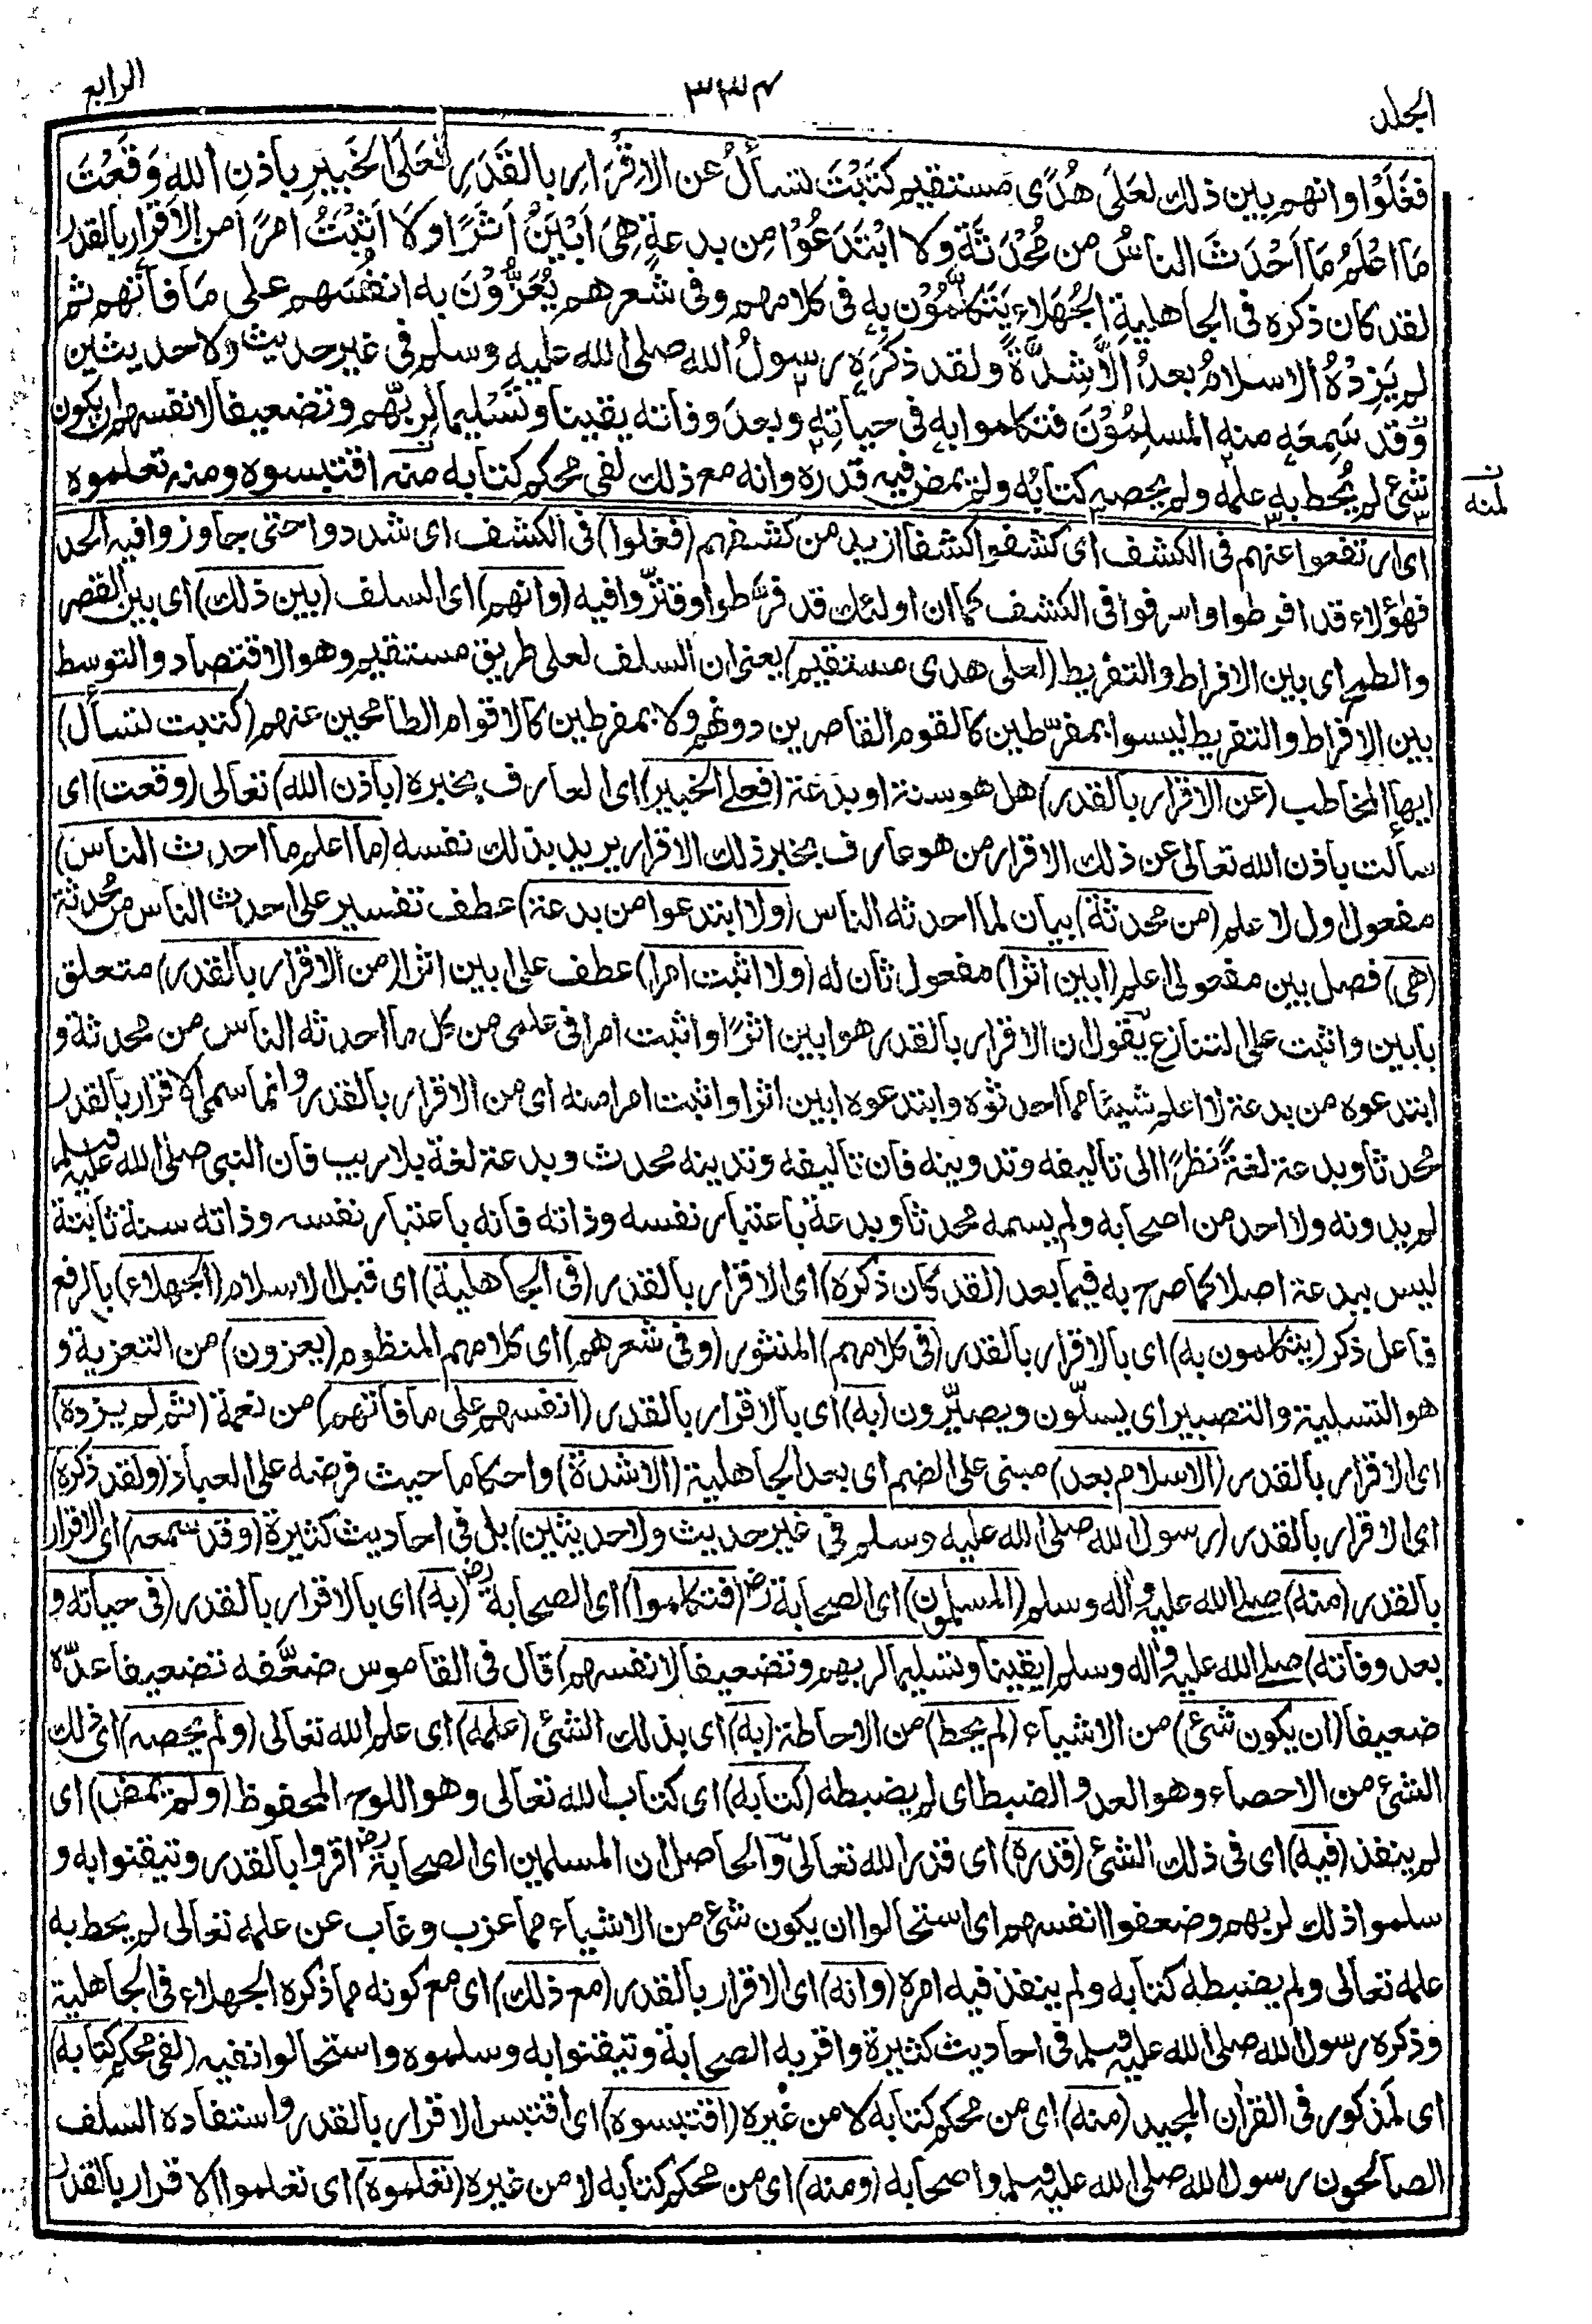 الجلد
٣٣٤
الرابع
فغَلَوْا وانهم بين ذلك لعَلَى هُدًى مستقيم كتَبْتَ تسأَلُ عن الاِقْرَارِ بالقَدَرِ فعَلَى الخَبِيرِ بِاذنِ اللهِ وَقَعْتَ
مَا اَعْلَمُ مَا اَحْدَثَ الناسُ من مُحْدَثَةٍ ولا ابْتَدَعُوْا مِن بدعةٍ هِىَ اَبْيَنُ اَثَرًا ولا اَثْبَتُ امرًا من الاقرار بالقدر
لقد كان ذكره فى الجاهلية الجُهَلاء يَتَكَلَّمُوْن بِه فى كلامهم وفى شعرهم يُعَزُّوْنَ به انفُسَهم على مَا فاتهم ثم
لم يَزِدْهُ الاسلامُ بعدُ الَّا شِدَّةً ولقد ذكَرَه رسولُ الله صلى الله عليه وسلم فى غير حديث ولا حديثين
وقد سَمِعَه منه المسلِمُوْنَ فتكلموا به فى حياتِه وبعدَ وفاته يقينا وتَسْليما لِربّهم وتضعيفا لانفسهم ان يكون
شئ لم يُحط به علمُه ولم يحصه كتابُه ولم يمض فيه قدره وانه مع ذلك لفى محكم كتابه منه اقتبسوه ومنه تعلموه
لمنه
اى ارتفعوا عنهم فى الكشف اى كشفوا كشفا ازيد من كشفهم (فغلوا) فى الكشف اى شددوا حتى جاوزوا فيه الحد
فهؤلاء قد افرطوا واسرفوا فى الكشف كما ان اولئك قد فرّطوا وقتّروا فيه (وانهم) اى السلف (بين ذلك) اى بين القصر
والطم اى بين الافراط والتفريط (لعلى هدى مستقيم) يعنى ان السلف لعلى طريق مستقيم وهو الاقتصاد والتوسط
بين الافراط والتفريط ليسوا بمفرّطين كالقوم القاصرين دونهم ولا بمفرطين كالاقوام الطامحين عنهم (كتبت تسأل)
ايها المخاطب (عن الاقرار بالقدر) هل هو سنة او بدعة (فعلى الخبير) اى العارف بخبره (باذن الله) تعالى (وقعت) اى
سألت باذن الله تعالى عن ذلك الاقرار من هو عارف بخبر ذلك الاقرار يريد بذلك نفسه (ما اعلم ما احدث الناس)
مفعول اول لا علم (من محدثة) بيان لما احدثه الناس (ولا ابتدعوا من بدعة) عطف تفسير على احدث الناس من محدثة
(هى) فصل بين مفعولى اعلم (ابين اثرا) مفعول ثان له (ولا اثبت امرا) عطف على ابين اثرا (من الاقرار بالقدر) متعلق
بابين واثبت على التنازع يقول ان الاقرار بالقدر هو ابين اثرًا واثبت امرا فى علمى من كل ما احدثه الناس من محدثة و
ابتدعوه من بدعة لا اعلم شيئا مما احدثوه وابتدعوه ابين اثرا واثبت امرا منه اى من الاقرار بالقدر وانما سمى الاقرار بالقدر
محدثا وبدعة لغةً نظرًا الى تاليفه وتدوينه فان تاليفه وتدوينه محدث وبدعة لغة بلا ريب فان النبى صلى الله عليه وسلم
لم يدونه ولا احد من اصحابه ولم يسمه محدثا وبدعة باعتبار نفسه وذاته فانه باعتبار نفسه وذاته سنة ثابتة
ليس ببدعة اصلا كما صرح به فيما بعد (لقد كان ذكره) اى الاقرار بالقدر (فى الجاهلية) اى قبل الاسلام (الجهلاء) بالرفع
فاعل ذكر (يتكلمون به) اى بالاقرار بالقدر (فى كلامهم) المنثور (وفى شعرهم) اى كلامهم المنظوم (يعزون) من التعزية و
هو التسلية والتصبير اى يسلّون ويصبّرون (به) اى بالاقرار بالقدر (انفسهم على ما فاتهم) من نعمة (ثم لم يزده)
اى الاقرار بالقدر (الاسلام بعد) مبنى على الضم اى بعد الجاهلية (الا شدة) واحكاما حيث فرضه على العباد (ولقد ذكره)
اى الاقرار بالقدر (رسول الله صلى الله عليه وسلم فى غير حديث ولا حديثين) بل فى احاديث كثيرة (وقد سمعه) اى الاقرار
بالقدر (منه) صلى الله عليه واله وسلم (المسلمون) اى الصحابة رض (فتكلموا) اى الصحابة رض (به) اى بالاقرار بالقدر (فى حياته و
بعد وفاته) صلى الله عليه واله وسلم (يقينا وتسليما لربهم وتضعيفا لانفسهم) قال فى القاموس ضعّفه تضعيفا عدّه
ضعيفا (ان يكون شئ) من الاشياء (لم يحط) من الاحاطة (به) اى بذلك الشئ (علمه) اى علم الله تعالى (ولم يحصه) اى ذلك
الشئ من الاحصاء وهو العد والضبط اى لم يضبطه (كتابه) اى كتاب الله تعالى وهو اللوح المحفوظ (ولم يمض) اى
لم ينفذ (فيه) اى فى ذلك الشئ (قدره) اى قدر الله تعالى والحاصل ان المسلمين اى الصحابة رض اقروا بالقدر وتيقنوا به و
سلموا ذلك لربهم وضعفوا انفسهم اى استحالوا ان يكون شئ من الاشياء مما عزب وغاب عن علمه تعالى لم يحط به
علمه تعالى ولم يضبطه كتابه ولم ينفذ فيه امره (وانه) اى الاقرار بالقدر (مع ذلك) اى مع كونه مما ذكره الجهلاء فى الجاهلية
وذكره رسول الله صلى الله عليه وسلم فى احاديث كثيرة واقر به الصحابة وتيقنوا به وسلموه واستحالوا نفيه (لفى محكم كتابه)
اى لمذكور فى القران المجيد (منه) اى من محكم كتابه لا من غيره (اقتبسوه) اى اقتبس الاقرار بالقدر واستفاده السلف
الصالحون رسول الله صلى الله عليه وسلم واصحابه (ومنه) اى من محكم كتابه لا من غيره (تعلموه) اى تعلموا الاقرار بالقدر